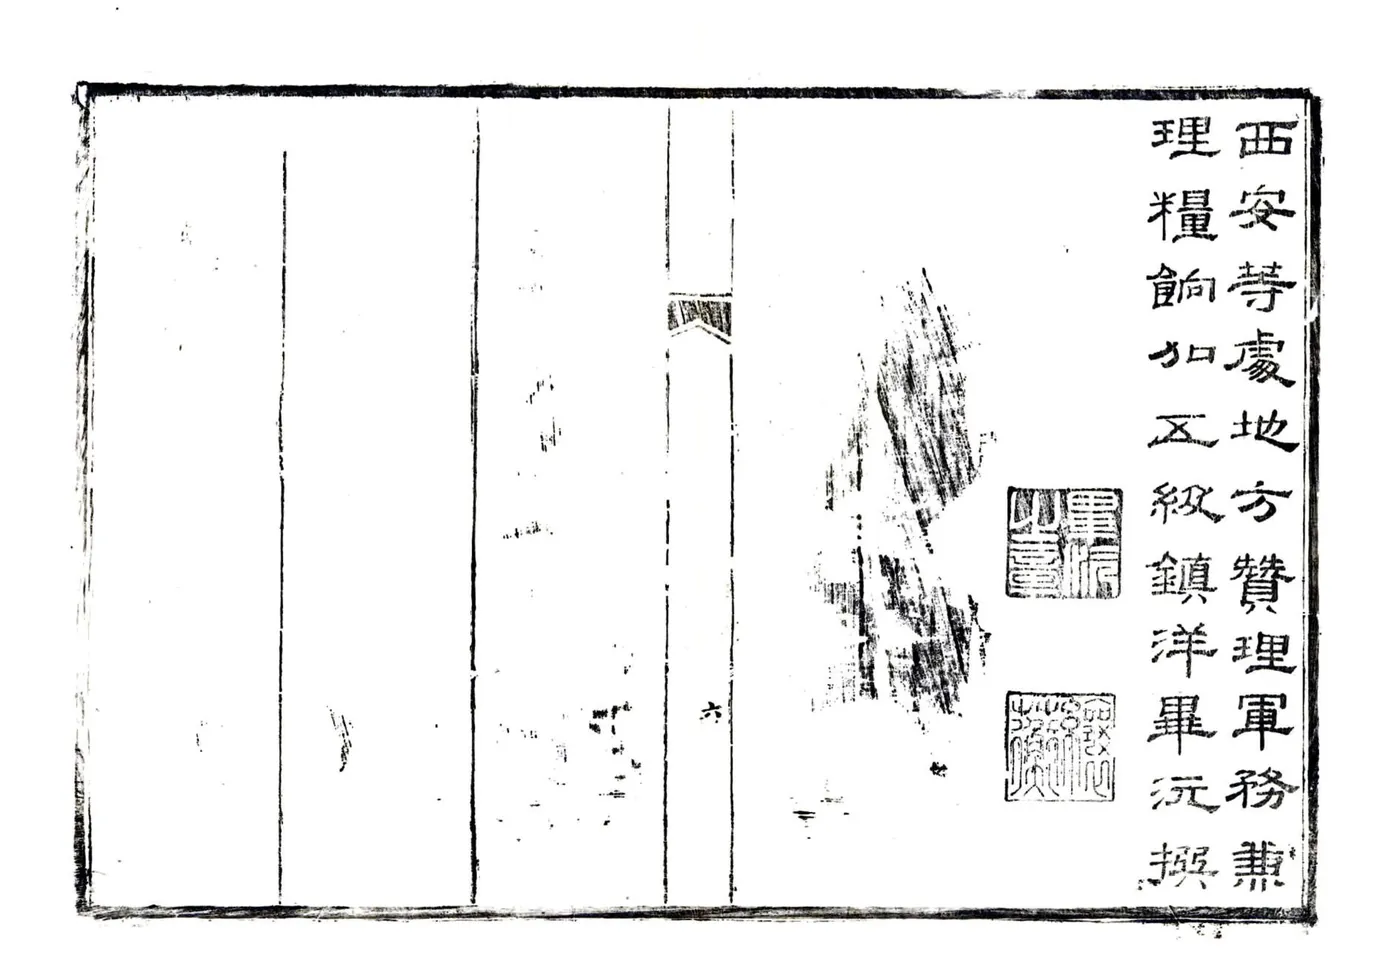 西安等處地方贊理軍務兼
理糧餉加五級鎮洋畢沅撰
畢沅之章
六